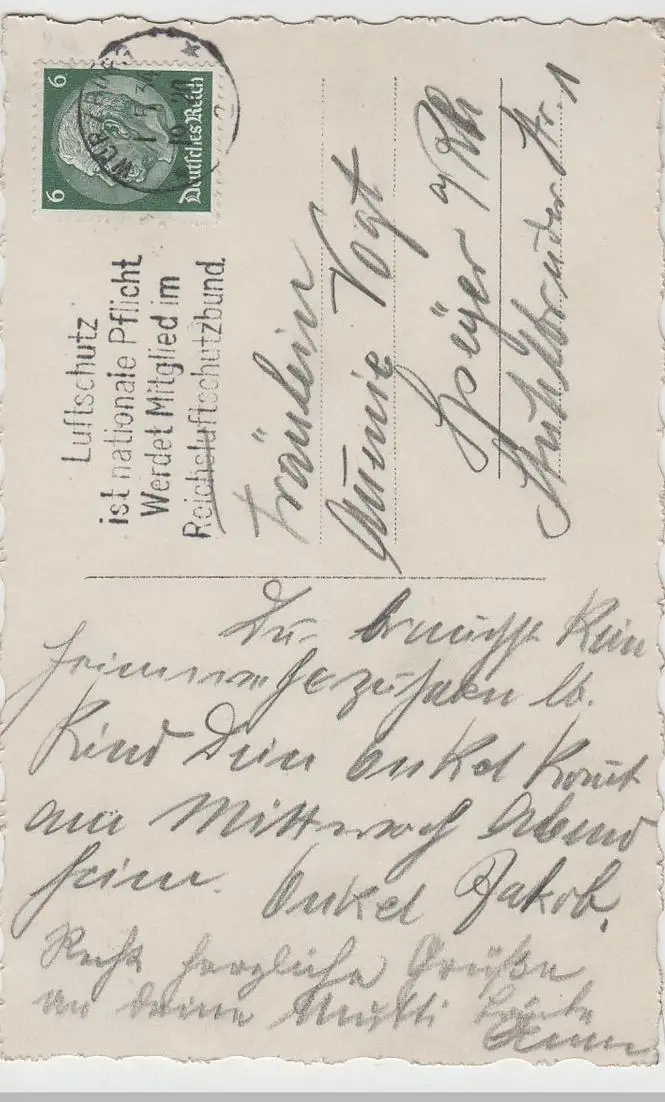 6 6
Deutsches Reich
WÜRZBURG
1.5.34
Luftschutz
ist nationale Pflicht
Werdet Mitglied im
Reichsluftschutzbund.
Fräulein
Annie Vogt
Speyer a/Rh
Stuhlbruder Str. 1
Du brauchst kein
heimweh zu haben lb.
Kind Dein Onkel komt
am Mittwoch Abend
heim. Onkel Jakob.
Recht herzliche Grüße
an deine Mutti